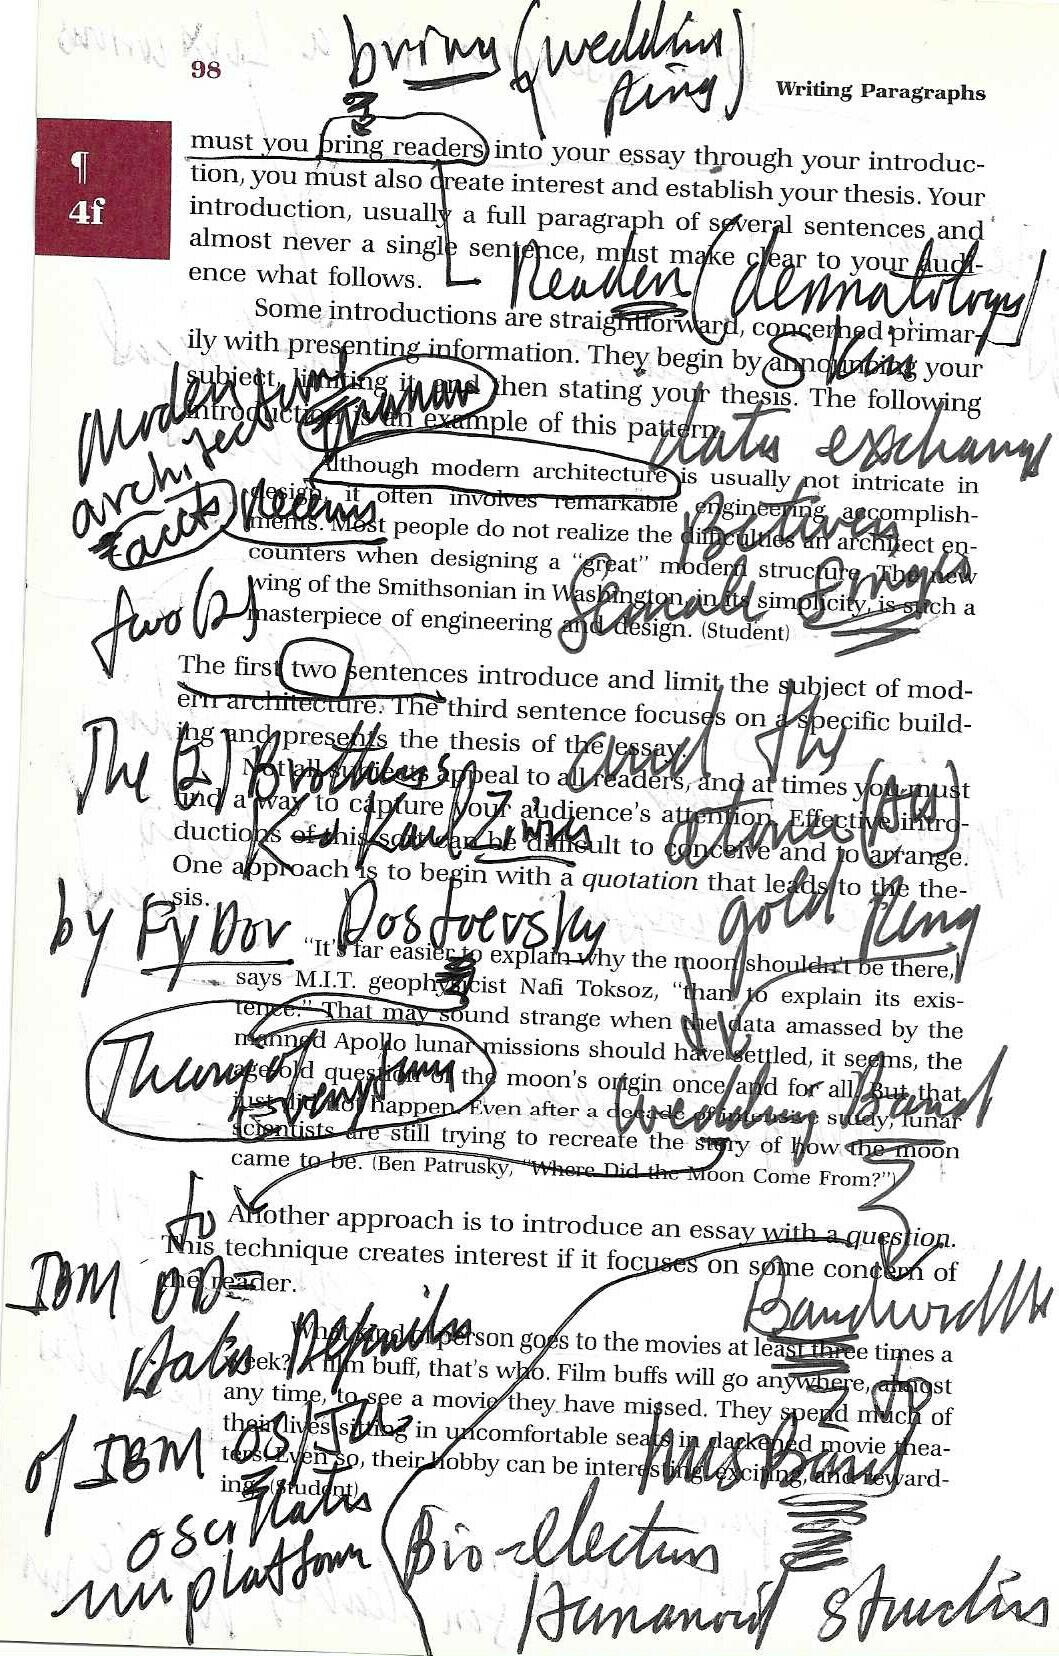 bring (wedding
ring)
98
Writing Paragraphs
must you bring readers into your essay through your introduc-
tion, you must also create interest and establish your thesis. Your
introduction, usually a full paragraph of several sentences and
almost never a single sentence, must make clear to your audi-
ence what follows.
¶
4f
Reader (dermatology)
Skin
Some introductions are straightforward, concerned primar-
ily with presenting information. They begin by announcing your
subject, limiting it, and then stating your thesis. The following
introduction is an example of this pattern.
data exchange
Between
Although modern architecture is usually not intricate in
design, it often involves remarkable engineering accomplish-
ments. Most people do not realize the difficulties an architect en-
counters when designing a “great” modern structure. The new
wing of the Smithsonian in Washington, in its simplicity, is such a
masterpiece of engineering and design. (Student)
two (2)
The first two sentences introduce and limit the subject of mod-
ern architecture. The third sentence focuses on a specific build-
ing and presents the thesis of the essay.
and the
atomic (Au)
gold Ring
The (2) Brothers
Not all subjects appeal to all readers, and at times you must
find a way to capture your audience’s attention. Effective intro-
ductions of this sort can be difficult to conceive and to arrange.
One approach is to begin with a quotation that leads to the the-
sis.
by FyDor Dostoevsky
“It’s far easier to explain why the moon shouldn’t be there,”
says M.I.T. geophysicist Nafi Toksoz, “than to explain its exis-
tence.” That may sound strange when the data amassed by the
manned Apollo lunar missions should have settled, it seems, the
age-old question of the moon’s origin once and for all. But that
just did not happen. Even after a decade of intensive study, lunar
scientists are still trying to recreate the story of how the moon
came to be. (Ben Patrusky, “Where Did the Moon Come From?”)
Theory of
Everything
Wedding Band
to
Another approach is to introduce an essay with a question.
This technique creates interest if it focuses on some concern of
the reader.
IBM DB2
Bandwidth
What kind of person goes to the movies at least three times a
week? A film buff, that’s who. Film buffs will go anywhere, almost
any time, to see a movie they have missed. They spend much of
their lives sitting in uncomfortable seats in darkened movie thea-
ters. Even so, their hobby can be interesting, exciting, and reward-
ing. (Student)
to
HusBand
of IBM OS/
platform
Bio-electric
Humanoid studies